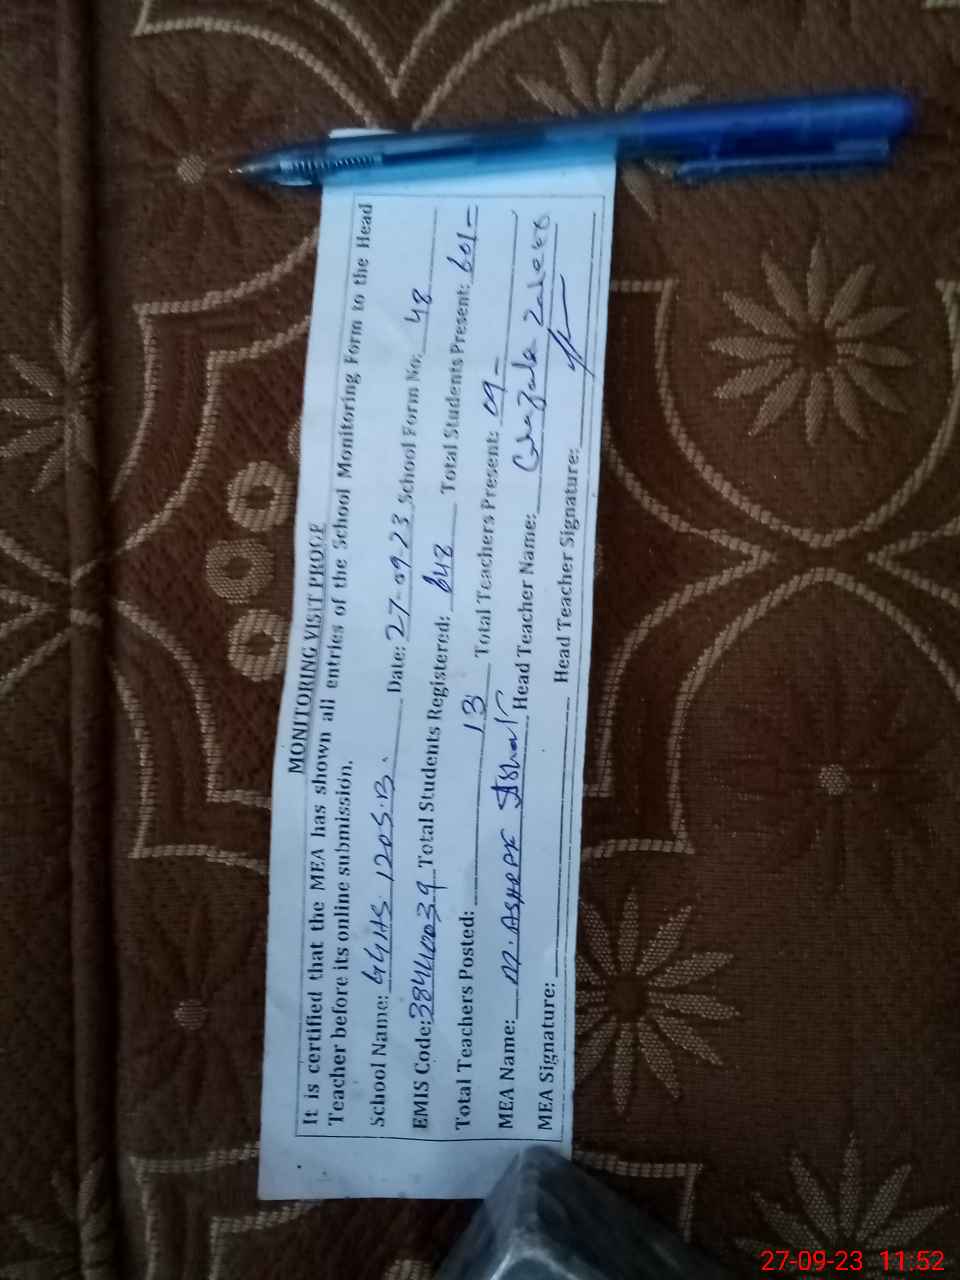 MONITORING VISIT PROOF
It is certified that the MEA has shown all entries of the School Monitoring Form to the Head
Teacher before its online submission.
School Name: GGHS 120 S.B. Date: 27-09-23 School Form No: 48
EMIS Code: 38440039 Total Students Registered: 648 Total Students Present: 601
Total Teachers Posted: 13 Total Teachers Present: 09
MEA Name: M. ASHRAF Head Teacher Name: Ghazala
MEA Signature: Head Teacher Signature:
27-09-23 11:52